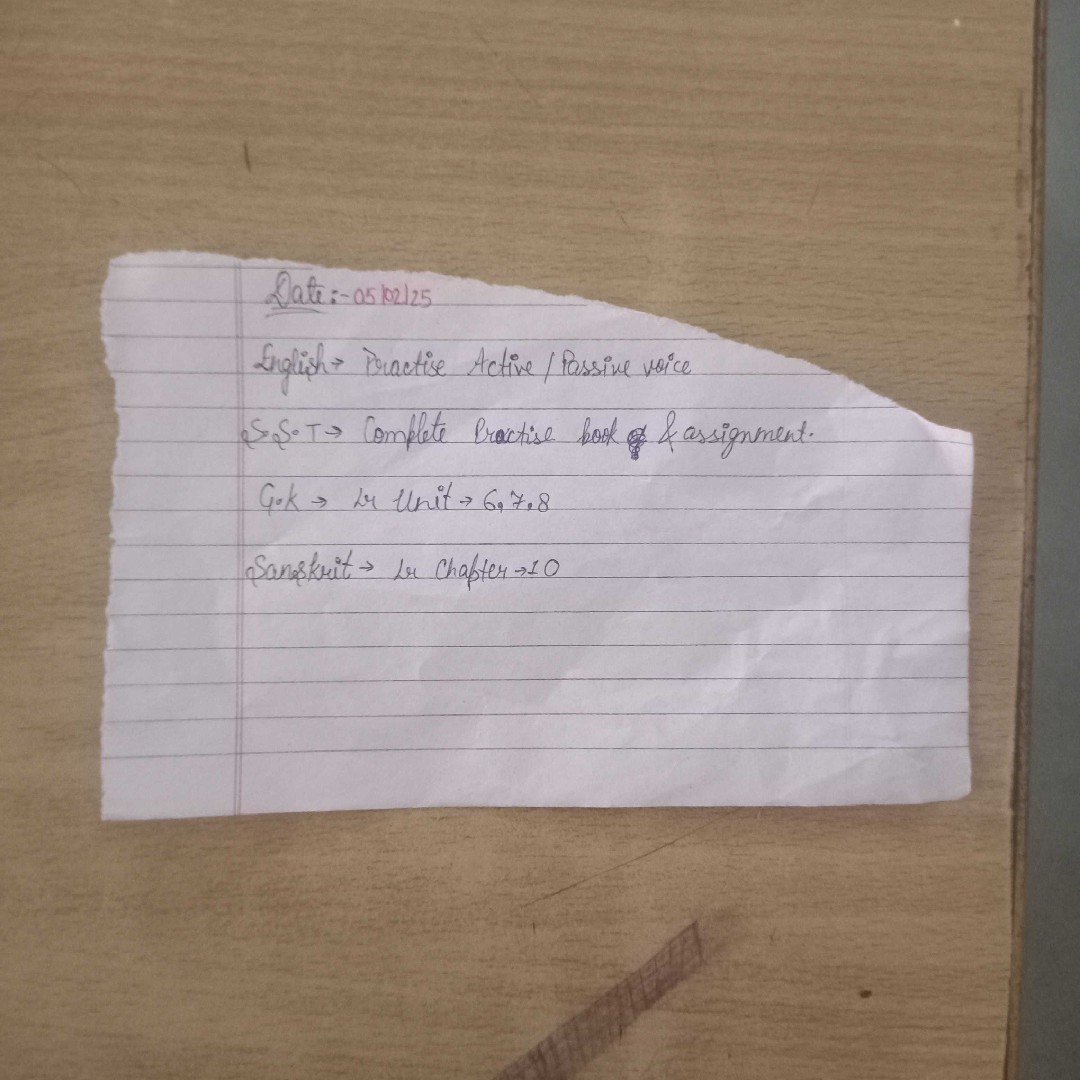 Date :- 05/02/25
English → Practise Active / Passive voice
S.S.T → Complete Practise book & assignment.
G.K → Lr Unit → 6,7,8
Sanskrit → Lr Chapter → 10